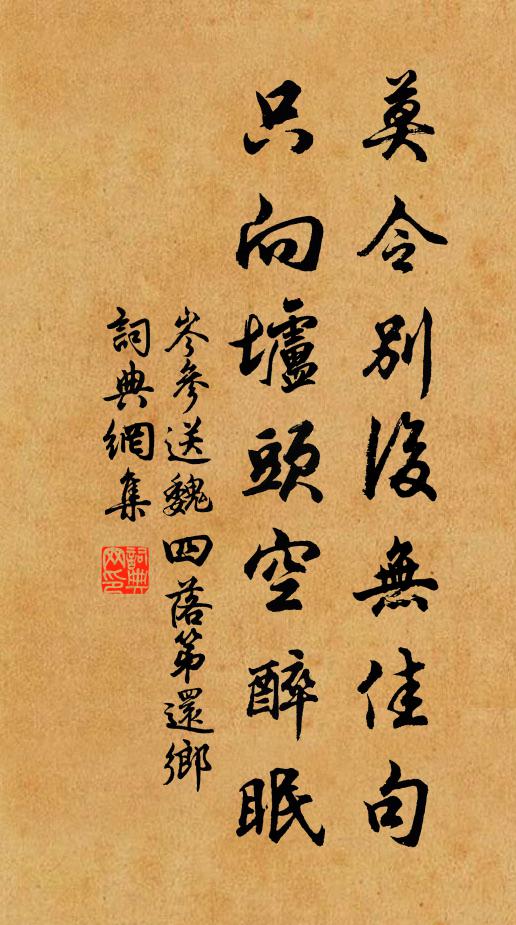 莫令別後無佳句
只向壚頭空醉眠
岑參送魏四落第還鄉
詞典網集
詞典網印